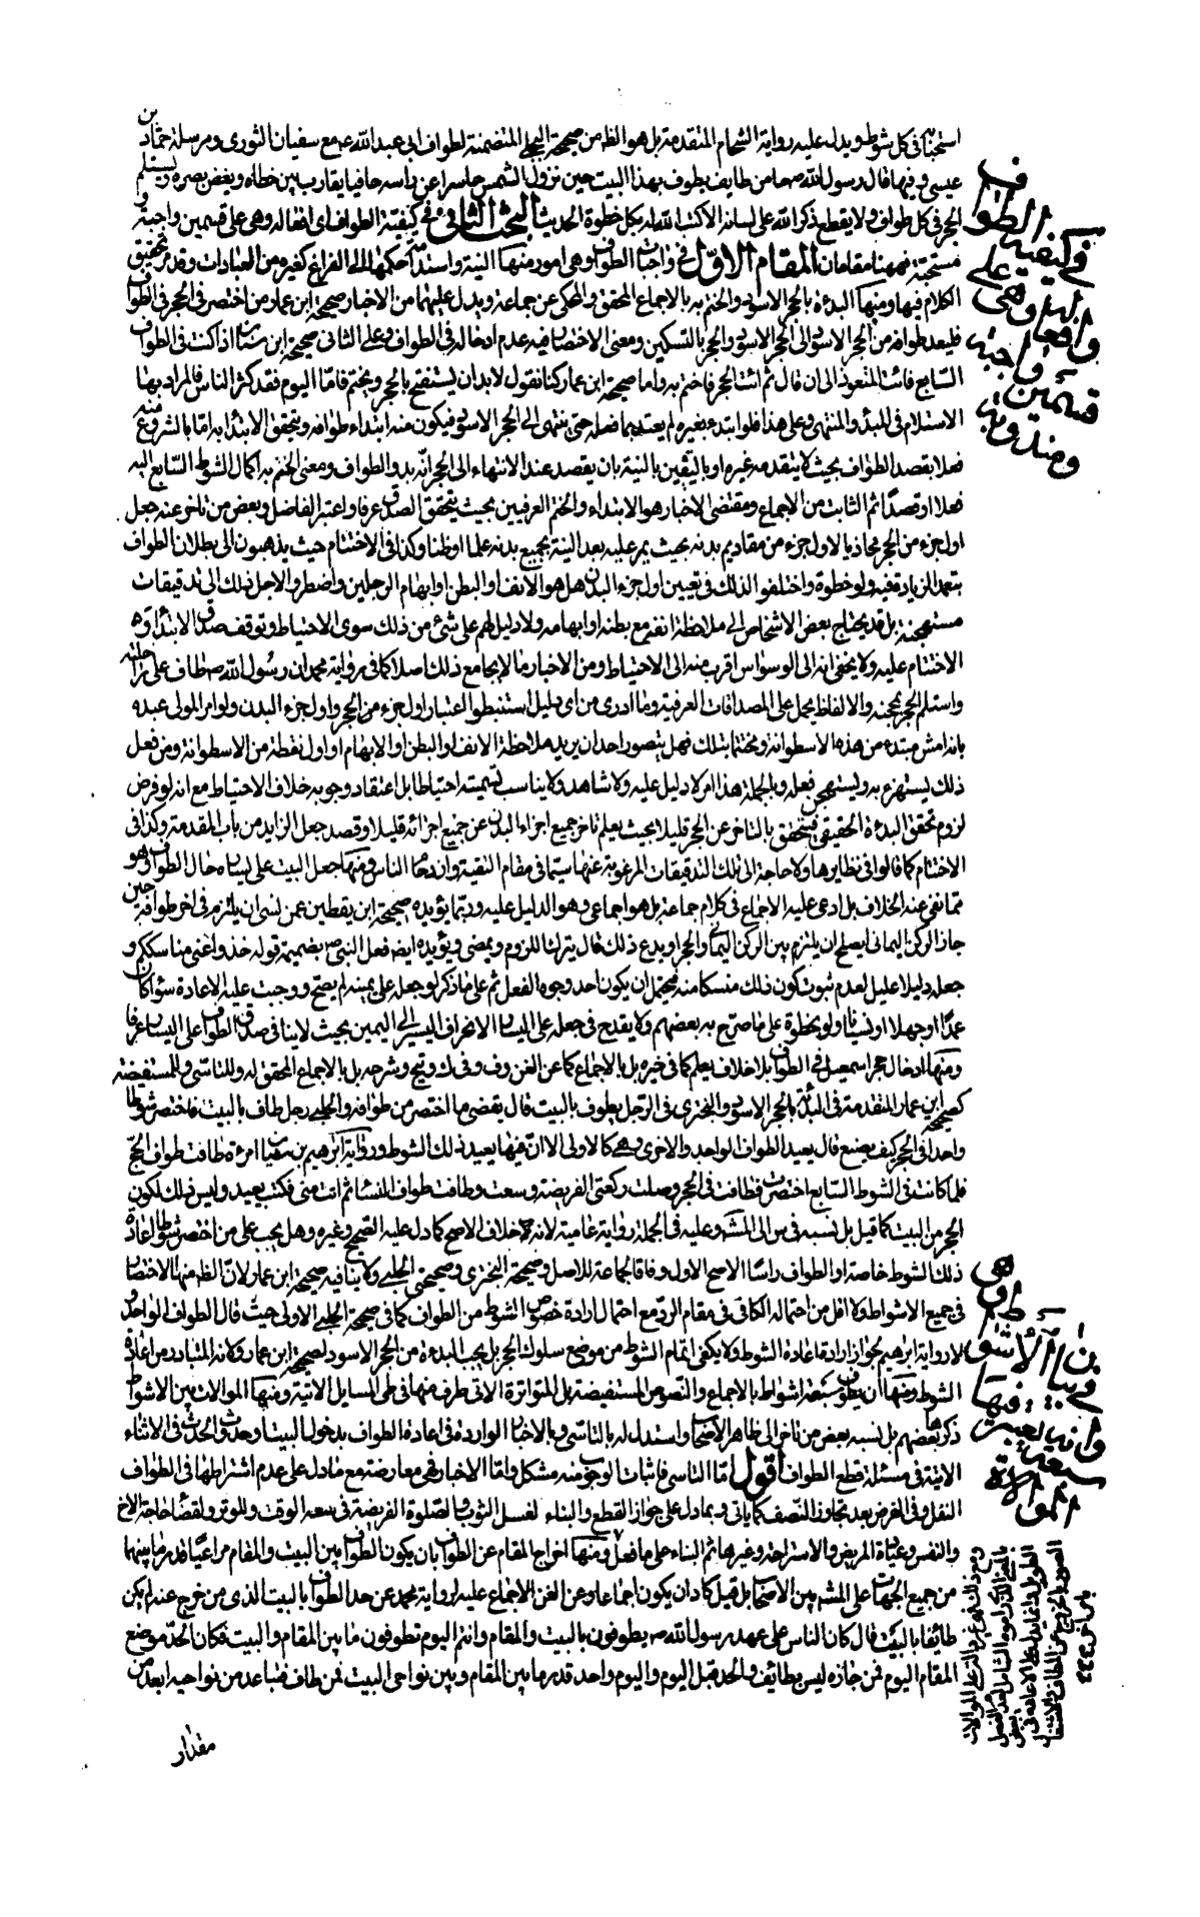 استحبابه في كل شوط ويدل عليه رواية الشحام المتقدمة بل هو الظ من صحيحة البجلي المتضمنة لطواف ابي عبد الله ع مع سفيان الثوري ومرسلة حماد بن
عيسى وفيها قال رسول الله ص ما من طايف يطوف بهذا البيت حين تزول الشمس حاسرا عن راسه حافيا يقارب بين خطاه ويغض بصره ويستلم
الحجر في كل طواف ولا يقطع ذكر الله على لسانه الا كتب الله له بكل خطوة الحديث البحث الثاني في كيفية الطواف اي افعاله وهي على قسمين واجبة و
مستحبة فههنا مقامان المقام الاول في واجبات الطواف وهي امور منها النية واستدامة حكمها الى الفراغ كغيره من العبادات وقد مر تحقيق
الكلام فيها ومنها البدءة بالحجر الاسود والختم به بالاجماع المحقق والمحكي عن جماعة ويدل عليهما من الاخبار صحيحة ابن عمار من اختصر في الحجر في الطواف
فليعد طوافه من الحجر الاسود الى الحجر الاسود والحجر بالتسكين ومعنى الاختصار فيه عدم ادخاله في الطواف وعلى الثاني صحيحة ابن سنان اذا كنت في الطواف
السابع فائت المتعوذ الى ان قال ثم ائت الحجر فاختم به واما صحيحة ابن عمار كنا نقول لابد ان يستفتح بالحجر ويختم فاما اليوم فقد كثر الناس فالمراد بها
الاستلام في المبدأ والمنتهى وعلى هذا فلو ابتدء بغيره لم يعتد بما فعله حتى ينتهي الى الحجر الاسود فيكون منه ابتداء طوافه ويتحقق الابتداء به اما بالشروع منه
فعلا بقصد الطواف بحيث لا يتقدمه غيره او باليقين بالنية بان يقصد عند الانتهاء الى الحجر انه بدو الطواف ومعنى الختم به اكمال الشوط السابع اليه
فعلا او قصدا ثم الثابت من الاجماع ومقتضى الاخبار هو الابتداء والختم العرفيين بحيث يتحقق الصدق عرفا واعتبر الفاضل وبعض من تاخر عنه جعل
اول جزء من الحجر محاذيا لاول جزء من مقاديم بدنه بحيث يمر عليه بعد النية بجميع بدنه علما او ظنا وكذا في الاختتام حيث يذهبون الى بطلان الطواف
بتعمد الزيادة فيه ولو خطوة واختلفوا لذلك في تعيين اول جزء البدن هل هو الانف او البطن او ابهام الرجلين واضطروا لاجل ذلك الى تدقيقات
مستهجنة بل قد يحتاج بعض الاشخاص الى ملاحظة انفه مع بطنه او ابهامه ولا دليل لهم على شئ من ذلك سوى الاحتياط وتوقف صدق الابتداء به و
الاختتام عليه ولا يخفى انه الى الوسواس اقرب منه الى الاحتياط ومن الاخبار ما لا يجامع ذلك اصلا كما في رواية محمد ان رسول الله ص طاف على راحلته
واستلم الحجر بمحجنه والالفاظ يحمل على المصداقات العرفية وما ادري من اي دليل استنبطوا اعتبار اول جزء من الحجر واول جزء البدن ولو امر المولى عبده
بانه امش مبتدء من هذه الاسطوانة ومختتما بتلك فهل يتصور احد ان يريد ملاحظة الانف او البطن او الابهام او اول نقطة من الاسطوانة ومن فعل
ذلك يستهزء به ويستهجن فعله وبالجملة هذا امر لا دليل عليه ولا شاهد ولا يناسب تسميته احتياطا بل اعتقاد وجوبه خلاف الاحتياط مع انه لو فرض
لزوم تحقق البدءة الحقيقي فيتحقق بالتاخر عن الحجر قليلا بحيث يعلم تاخر جميع اجزاء البدن عن جميع اجزائه قليلا وقصد جعل الزايد من باب المقدمة وكذا في
الاختتام كما قالوا في نظايرها ولا حاجة الى تلك التدقيقات المرغوبة عنها سيما في مقام التقية وازدحام الناس ومنها جعل البيت على يساره حال الطواف وهو
مما نفي عنه الخلاف بل ادعي عليه الاجماع في كلام جماعة بل هو اجماعي وهو الدليل عليه وربما يؤيده صحيحة ابن يقطين عمن نسي ان يلتزم في اخر طوافه حين
جاز الركن اليماني ايصلح ان يلتزم بين الركن اليماني والحجر او يدع ذلك قال يترك اللزوم ويمضي ويؤيده ايضا فعل النبي ص بضميمة قوله خذوا عني مناسككم و
جعله دليلا عليل لعدم ثبوت كون ذلك منسكا منه فيحتمل ان يكون احد وجوه الفعل ثم على ما ذكر لو جعله على يمينه لم يصح ووجبت عليه الاعادة سواء كان
عمدا او جهلا او نسيانا ولو بخطوة على ما صرح به بعضهم ولا يقدح في جعله على اليسار الانحراف اليسير الى اليمين بحيث لا ينافي صدق الطواف على اليسار عرفا
ومنها ادخال حجر اسمعيل في الطواف بلا خلاف يعلم كما في خيره بل بالاجماع كما عن الغن وف وفي ك وتيح وشرحه بل بالاجماع المحقق له وللتاسي وللمستفيضة
كصحيحة ابن عمار المتقدمة في البدئة بالحجر الاسود والبختري في الرجل يطوف بالبيت قال يقضي ما اختصر من طوافه والحلبي رجل طاف بالبيت فاختصر شوطا
واحدا في الحجر كيف يصنع قال يعيد الطواف الواحد والاخرى وهي كالاولى الا ان فيها يعيد ذلك الشوط ورواية ابرهيم بن سفيان امرءة طافت طواف الحج
فلما كانت في الشوط السابع اختصرت فطافت في الحجر وصلت ركعتي الفريضة وسعت وطافت طواف النساء ثم اتت منى فكتب يعيد وليس ذلك لكون
الحجر من البيت كما قيل بل نسبه في س الى المشهور وعليه في الجملة رواية عامية لانه خلاف الاصح كما دل عليه الصحيح وغيره وهل يجب على من اختصر شوطا اعادة
ذلك الشوط خاصة او الطواف راسا الاصح الاول وفاقا لجماعة للاصل وصحيحة البختري وصحيحتي الحلبي ولا ينافيه صحيحة ابن عمار لان الظ منها الاختصار
في جميع الاشواط ولا اقل من احتماله الكافي في مقام الرد مع احتمال ارادة خصوص الشوط من الطواف كما في صحيحة الحلبي الاولى حيث قال الطواف الواحد و
لا رواية ابرهيم لجواز ارادة اعادة الشوط ولا يكفي اتمام الشوط من موضع سلوك الحجر بل يجب البدءة من الحجر الاسود لصحيحة ابن عمار وكانه المتبادر من اعادة
الشوط ومنها ان يطوف سبعة اشواط بالاجماع والنصوص المستفيضة بل المتواترة الاتي طرف منها في طي المسايل الاتية ومنها الموالات بين الاشواط
ذكرها بعضهم بل نسبه بعض من تاخر الى ظاهر الاصحاب واستدل له بالتاسي وبالاخبار الواردة في اعادة الطواف بدخول البيت او حدوث الحدث في الاثناء
الاتية في مسئلة قطع الطواف اقول اما التاسي فاثبات الوجوب منه مشكل واما الاخبار فهي معارضة مع ما دل على عدم اشتراطها في الطواف
النفل وفي الفرض بعد تجاوز النصف كما ياتي وبما دل على جواز القطع والبناء لغسل الثوب والصلوة الفريضة في سعة الوقت وللوتر ولقضاء حاجة الاخ
والنفس وعيادة المريض والاستراحة وغيرها ثم البناء على ما فعل ومنها اخراج المقام عن الطواف بان يكون الطواف بين البيت والمقام مراعيا قدر ما بينهما
من جميع الجهات على المشهور بين الاصحاب بل قيل كاد ان يكون اجماعا وعن الغن الاجماع عليه لرواية محمد عن حد الطواف بالبيت الذي من خرج عنه لم يكن
طائفا بالبيت قال كان الناس على عهد رسول الله ص يطوفون بالبيت والمقام وانتم اليوم تطوفون ما بين المقام والبيت فكان الحد موضع
المقام اليوم فمن جازه ليس بطائف والحد قبل اليوم واليوم واحد قدر ما بين المقام وبين نواحي البيت فمن طاف فتباعد من نواحيه ابعد من
مقدار
في كيفية الطواف
وافعاله وهي على
قسمين واجبة
ومندوبة
في بيان الاشواط وهي
سبعة
وانه يعتبر فيها
الموالاة